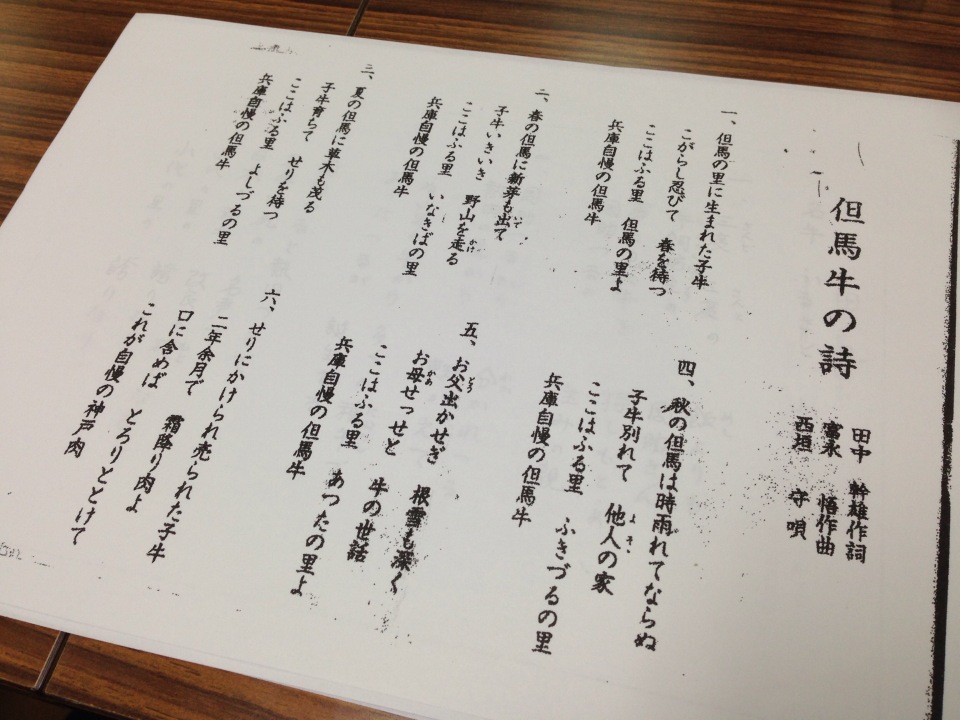 但馬牛の詩
田中 幹雄作詞
富永 悟作曲
西垣 守 唄
一、但馬の里に生まれた子牛
こがらし忍びて 春を待つ
ここはふる里 但馬の里よ
兵庫自慢の但馬牛
二、春の但馬に新芽も出て
子牛いきいき 野山を走る
ここはふる里 いなきばの里
兵庫自慢の但馬牛
三、夏の但馬に草木も茂る
子牛育ちて せりを待つ
ここはふる里 よしづるの里
兵庫自慢の但馬牛
四、秋の但馬は時雨れてならぬ
子牛別れて 他人の家
ここはふる里 ふきづるの里
兵庫自慢の但馬牛
五、お父出かせぎ 根雪も深く
お母せっせと 牛の世話
ここはふる里 あつたの里よ
兵庫自慢の但馬牛
六、せりにかけられ売られた子牛
二年余月で 霜降り肉よ
口に含めば とろりととけて
これが自慢の神戸肉